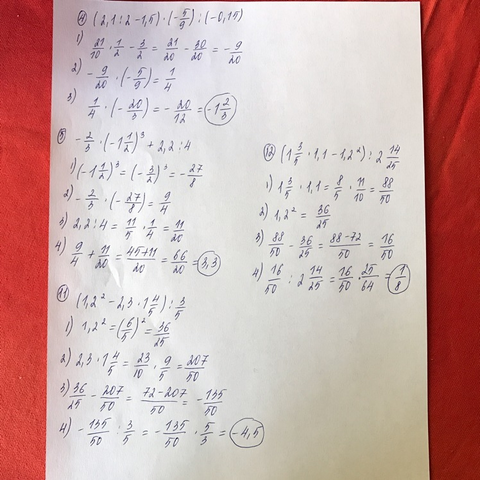 ④ (2,1 : 2 - 1,5) · (-5/9) : (-0,15)
1) 21/10 · 1/2 - 3/2 = 21/20 - 30/20 = -9/20
2) -9/20 · (-5/9) = 1/4
3) 1/4 · (-20/3) = -20/12 = -1 2/3
⑤ -2/3 · (-1 1/2)³ + 2,2 : 4
1) (-1 1/2)³ = (-3/2)³ = -27/8
2) -2/3 · (-27/8) = 9/4
3) 2,2 : 4 = 11/5 · 1/4 = 11/20
4) 9/4 + 11/20 = 45+11/20 = 66/20 = 3,3
⑪ (1,2² - 2,3 · 1 4/5) : 3/5
1) 1,2² = (6/5)² = 36/25
2) 2,3 · 1 4/5 = 23/10 · 9/5 = 207/50
3) 36/25 - 207/50 = 72-207/50 = -135/50
4) -135/50 : 3/5 = -135/50 · 5/3 = -4,5
⑫ (1 3/5 · 1,1 - 1,2²) : 2 14/25
1) 1 3/5 · 1,1 = 8/5 · 11/10 = 88/50
2) 1,2² = 36/25
3) 88/50 - 36/25 = 88-72/50 = 16/50
4) 16/50 : 2 14/25 = 16/50 · 25/64 = 1/8